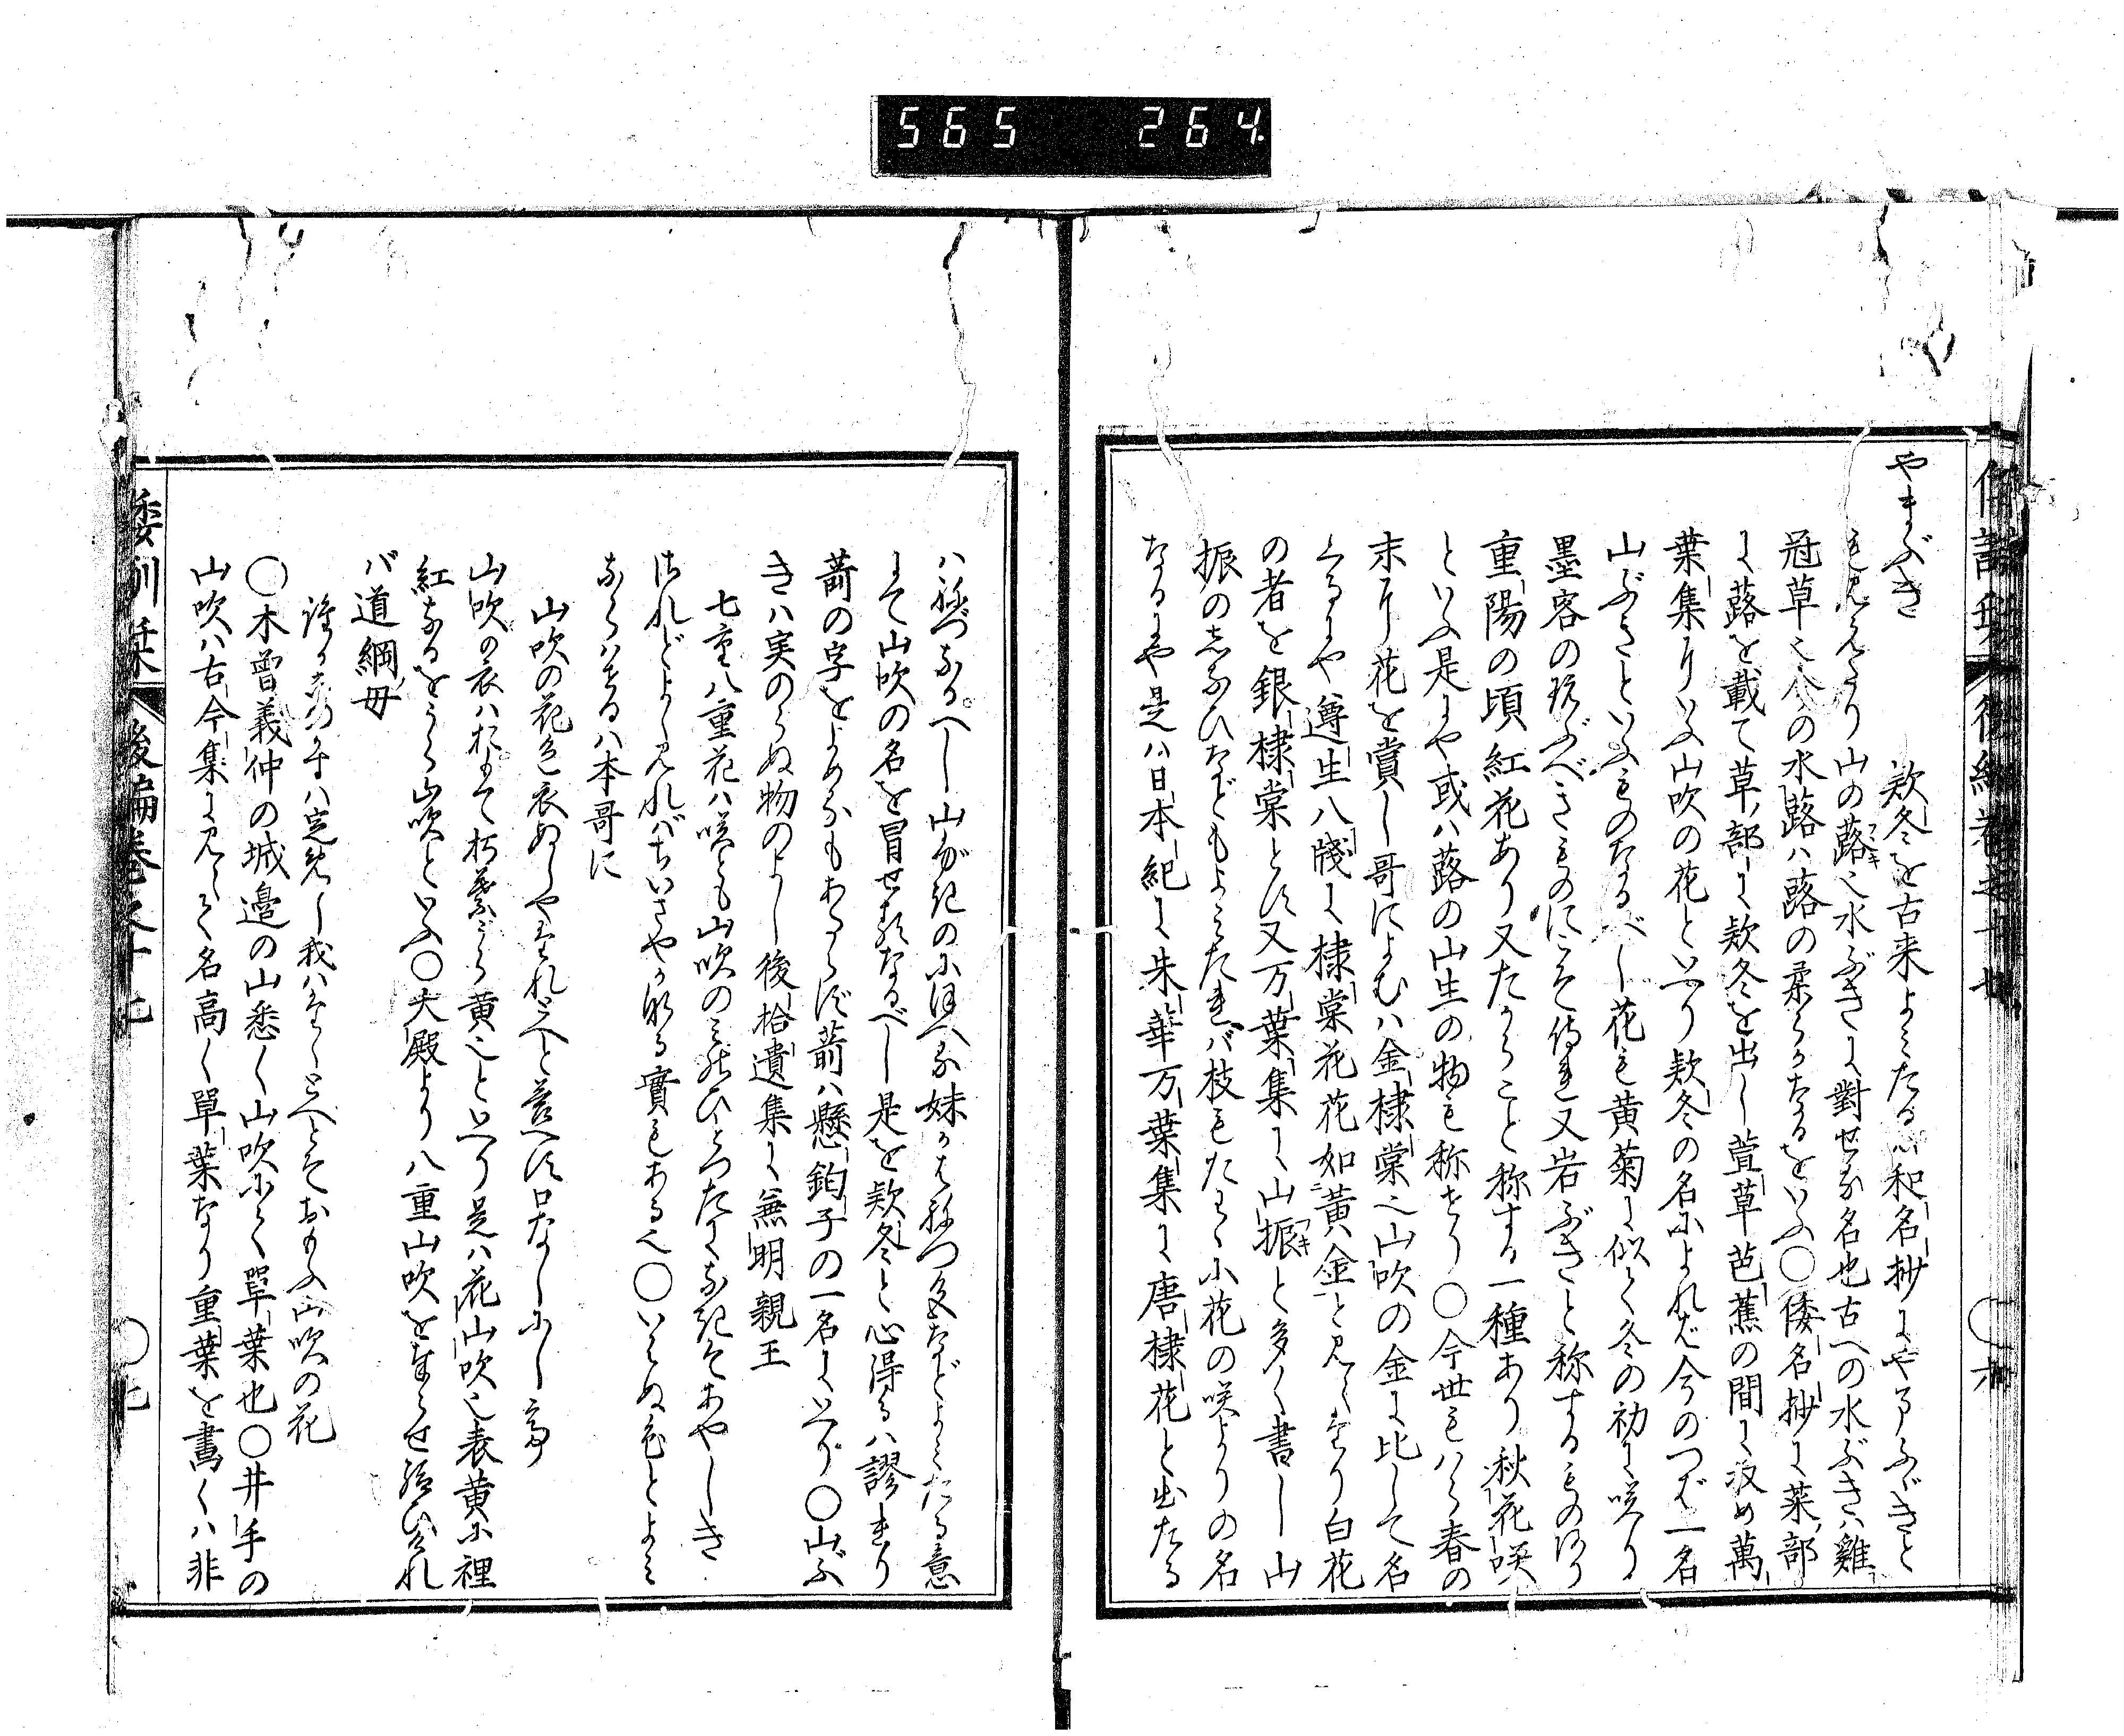 565 264
やまぶき 欵冬を古来よみたる和名抄にやまふぶきと
も見えたり山の蕗也水ぶきに對せる名也古への水ぶきハ雞
冠草也今の水蕗ハ蕗の柔らかなるをいふ〇倭名抄に菜部
に蕗を載て草部に欵冬を出し萱草芭蕉の間に収め萬
葉集にハ山吹の花といへり欵冬の名によれば今のつは一名
山ぶきといふものなるべし花も黄菊に似て冬の初に咲り
墨客の玩ぶべきものにこそ侍れ又岩ぶきと称するものあり
重陽の頃紅花あり又たからこと称する一種あり秋花咲
といふ是にや或ハ蕗の山生の物も称せり〇今世もハら春の
末に花を賞し哥によむハ金棣棠也山吹の金に比して名
くるにや遵生八牋に棣棠花花如黃金と見えたり白花
の者を銀棣棠とす又万葉集に山振と多く書し山
振の志なひなどもよみたれバ枝もたわゝに花の咲よりの名
なるにや是ハ日本紀に朱華万葉集に唐棣花と出たる
ハねづなるべし山ぶきのにほへる妹かはねつ色などよみたる意
にて山吹の名を冒せるなるべし是を欵冬と心得るハ謬れり
萮の字をよめるもあたらず萮ハ懸鉤子の一名にいへり〇山ぶ
きハ実のらぬ物のよし後拾遺集に無明親王
七重八重花ハ咲とも山吹のみのひとつたになきそあやしき
されどよく見れバちいさやかなる實もある也〇いはぬ色とよみ
ならハせるハ本哥に
山吹の花色衣ぬしやたれとへと答へす口なしにして
山吹の衣ハおもて朽葉うら黄也といへり是ハ花山吹也表黄に裡
紅なるをうら山吹といふ〇大殿より八重山吹を奉らせ給ひけれ
バ道綱母
誰かこの数ハ定めし我ハたゝとへとそおもふ山吹の花
〇木曽義仲の城邉の山悉く山吹にて單葉也〇井手の
山吹ハ古今集に見えて名高く單葉なり重葉を書くハ非
倭訓栞 後編巻之十七